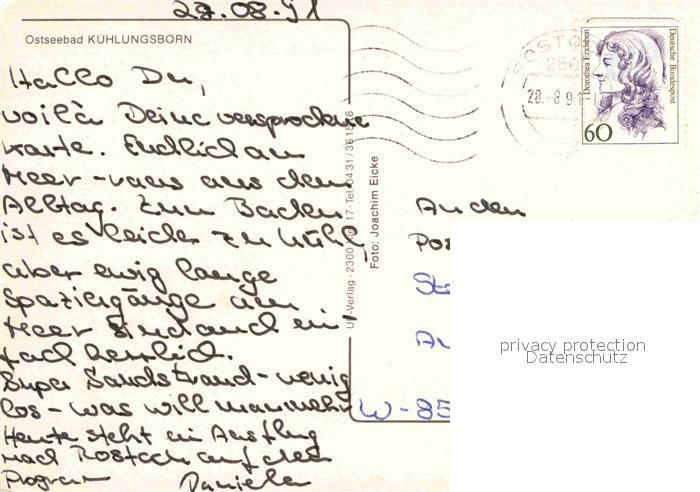 27.08.91
Ostseebad KÜHLUNGSBORN
Hallo Du,
voilà Deine versprochene
Karte. Endlich am
Meer - raus aus dem
Alltag. Zum Baden
ist es leider zu kühl,
aber ewig lange
Spaziergänge am
Meer sind auch ein-
fach herrlich.
Super Sandstrand - wenig
los - was will man mehr
Heute steht ein Ausflug
nach Rostock auf dem
Program
Daniela
Foto: Joachim Eicke
ROSTO
256
28.-8.9
Dorothea Erxleben
Deutsche Bundespost
60
An den
W-85
privacy protection
Datenschutz